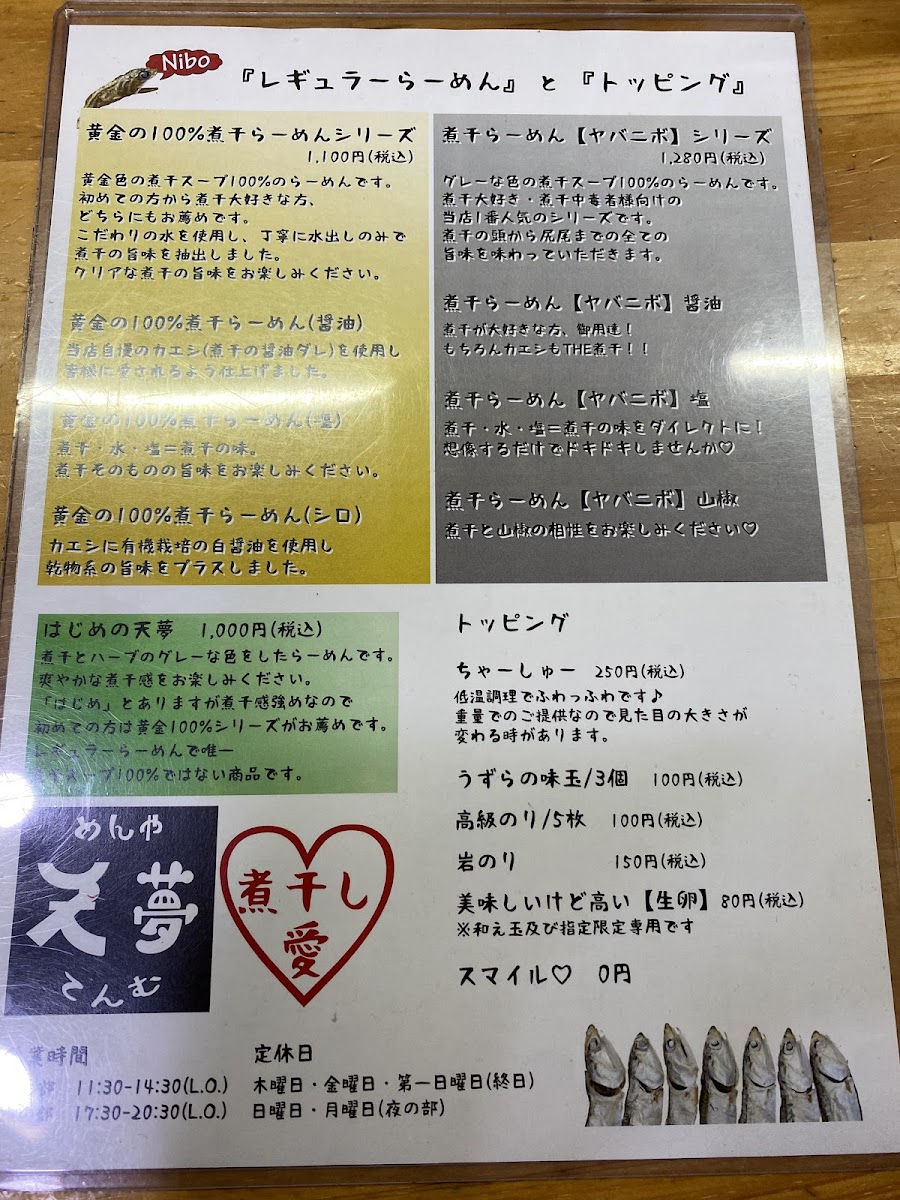 Nibo
『レギュラーらーめん』と『トッピング』
黄金の100%煮干らーめんシリーズ
1,100円(税込)
黄金色の煮干スープ100%のらーめんです。
初めての方から煮干大好きな方、
どちらにもお薦めです。
こだわりの水を使用し、丁寧に水出しのみで
煮干の旨味を抽出しました。
クリアな煮干の旨味をお楽しみください。
黄金の100%煮干らーめん(醤油)
当店自慢のカエシ(煮干の醤油ダレ)を使用し
皆様に愛されるよう仕上げました。
黄金の100%煮干らーめん(塩)
煮干・水・塩=煮干の味。
煮干そのものの旨味をお楽しみください。
黄金の100%煮干らーめん(シロ)
カエシに有機栽培の白醤油を使用し
乾物系の旨味をプラスしました。
煮干らーめん【ヤバニボ】シリーズ
1,280円(税込)
グレーな色の煮干スープ100%のらーめんです。
煮干大好き・煮干中毒者様向けの
当店1番人気のシリーズです。
煮干の頭から尻尾までの全ての
旨味を味わっていただきます。
煮干らーめん【ヤバニボ】醤油
煮干が大好きな方、御用達!
もちろんカエシもTHE煮干!!
煮干らーめん【ヤバニボ】塩
煮干・水・塩=煮干の味をダイレクトに!
想像するだけでドキドキしませんか♡
煮干らーめん【ヤバニボ】山椒
煮干と山椒の相性をお楽しみください♡
はじめの天夢 1,000円(税込)
煮干とハーブのグレーな色をしたらーめんです。
爽やかな煮干感をお楽しみください。
「はじめ」とありますが煮干感強めなので
初めての方は黄金100%シリーズがお薦めです。
レギュラーらーめんで唯一
スープ100%ではない商品です。
トッピング
ちゃーしゅー 250円(税込)
低温調理でふわっふわです♪
重量でのご提供なので見た目の大きさが
変わる時があります。
うずらの味玉/3個 100円(税込)
高級のり/5枚 100円(税込)
岩のり 150円(税込)
美味しいけど高い【生卵】80円(税込)
※和え玉及び指定限定専用です
スマイル♡ 0円
めんや
天夢
てんむ
煮干し
愛
時間
部 11:30-14:30(L.O.)
部 17:30-20:30(L.O.)
定休日
木曜日・金曜日・第一日曜日(終日)
日曜日・月曜日(夜の部)